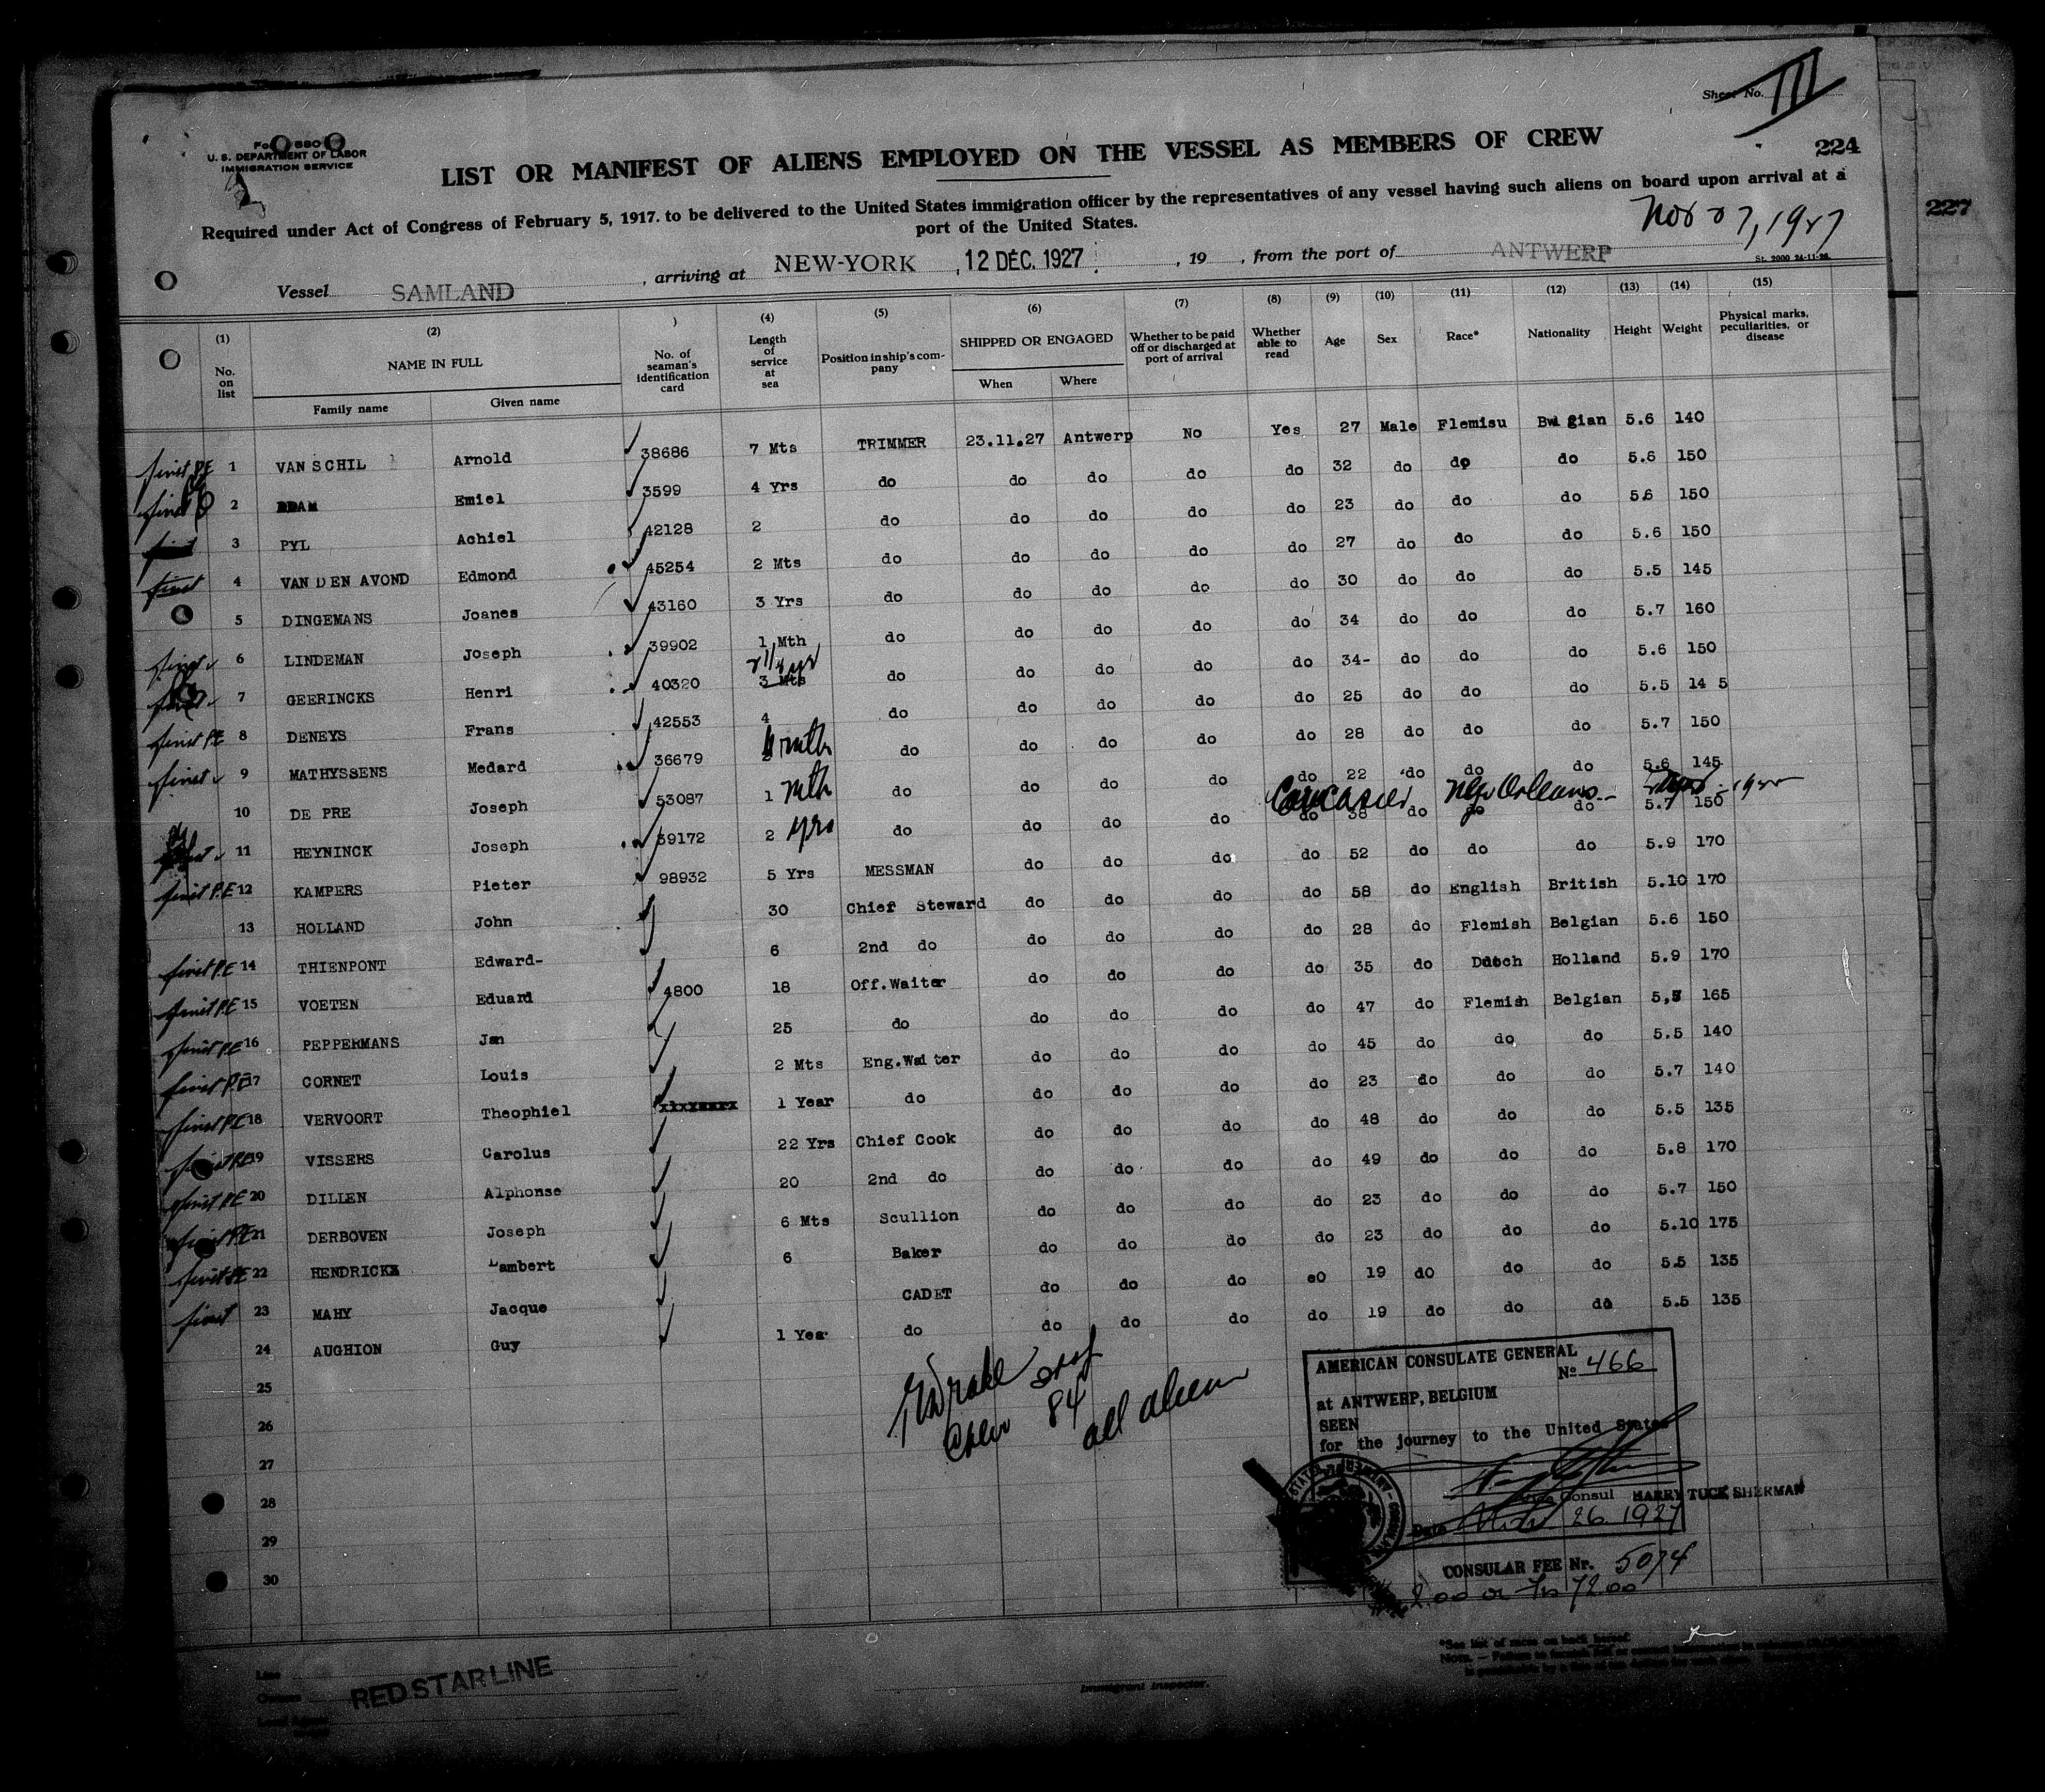 Sheet No. III
U. S. DEPARTMENT OF LABOR
IMMIGRATION SERVICE
LIST OR MANIFEST OF ALIENS EMPLOYED ON THE VESSEL AS MEMBERS OF CREW
224
227
Required under Act of Congress of February 5, 1917. to be delivered to the United States immigration officer by the representatives of any vessel having such aliens on board upon arrival at a
port of the United States.
Nov 27, 1927
Vessel SAMLAND, arriving at NEW-YORK, 12 DÉC. 1927, 19 , from the port of ANTWERP
St. 2000 24-11-26.
(1) (2) ) (4) (5) (6) (7) (8) (9) (10) (11) (12) (13) (14) (15)
No. on list NAME IN FULL Family name Given name No. of seaman's identification card Length of service at sea Position in ship's company SHIPPED OR ENGAGED When Where Whether to be paid off or discharged at port of arrival Whether able to read Age Sex Race* Nationality Height Weight Physical marks, peculiarities, or disease
finst P.E 1 VAN SCHIL Arnold 38686 7 Mts TRIMMER 23.11.27 Antwerp No Yes 27 Male Flemisu Bwlgian 5.6 140
2 Emiel 3599 4 Yrs do do do do do 32 do do do 5.6 150
3 PYL Achiel 42128 2 do do do do do 23 do do do 5.6 150
4 VAN DEN AVOND Edmond 45254 2 Mts do do do do do 27 do do do 5.6 150
5 DINGEMANS Joanes 43160 3 Yrs do do do do do 30 do do do 5.5 145
finst 6 LINDEMAN Joseph 39902 1 Mth do do do do do 34 do do do 5.7 160
7 GEERINCKS Henri 40320 3 Mts do do do do do 34- do do do 5.6 150
finst P.E 8 DENEYS Frans 42553 4 do do do do do 25 do do do 5.5 14 5
finst 9 MATHYSSENS Medard 36679 mth do do do do do 28 do do do 5.7 150
10 DE PRE Joseph 53087 1 mth do do do do do 22 do do do 5.6 145
New Orleans
11 HEYNINCK Joseph 39172 2 yrs do do do do do 38 do do do 5.7 150
finst P.E 12 KAMPERS Pieter 98932 5 Yrs MESSMAN do do do do 52 do do do 5.9 170
13 HOLLAND John 30 Chief Steward do do do do 58 do English British 5.10 170
finst P.E 14 THIENPONT Edward- 6 2nd do do do do do 28 do Flemish Belgian 5.6 150
finst P.E 15 VOETEN Eduard 4800 18 Off.Waiter do do do do 35 do Dutch Holland 5.9 170
finst P.E 16 PEPPERMANS Jan 25 do do do do do 47 do Flemish Belgian 5,5 165
finst P.E 17 CORNET Louis 2 Mts Eng.Waiter do do do do 45 do do do 5.5 140
finst P.E 18 VERVOORT Theophiel 1 Year do do do do do 23 do do do 5.7 140
finst P.E 19 VISSERS Carolus 22 Yrs Chief Cook do do do do 48 do do do 5.5 135
finst P.E 20 DILLEN Alphonse 20 2nd do do do do do 49 do do do 5.8 170
finst P.E 21 DERBOVEN Joseph 6 Mts Scullion do do do do 23 do do do 5.7 150
finst P.E 22 HENDRICKX Lambert 6 Baker do do do do 23 do do do 5.10 175
finst 23 MAHY Jacque CADET do do do eo 19 do do do 5.5 135
24 AUGHION Guy 1 Year do do do do do 19 do do do 5.5 135
25
26
27
28
29
30
Crew 84
all alien
AMERICAN CONSULATE GENERAL
No 466
at ANTWERP, BELGIUM
SEEN
for the journey to the United States
Vice Consul HARRY TUCK SHERMAN
Date Nov 26 1927
CONSULAR FEE Nr. 5074
2.00 or Frs 72.00
*See list of races on back hereof.
Line
Owners
RED STAR LINE
Immigrant Inspector.